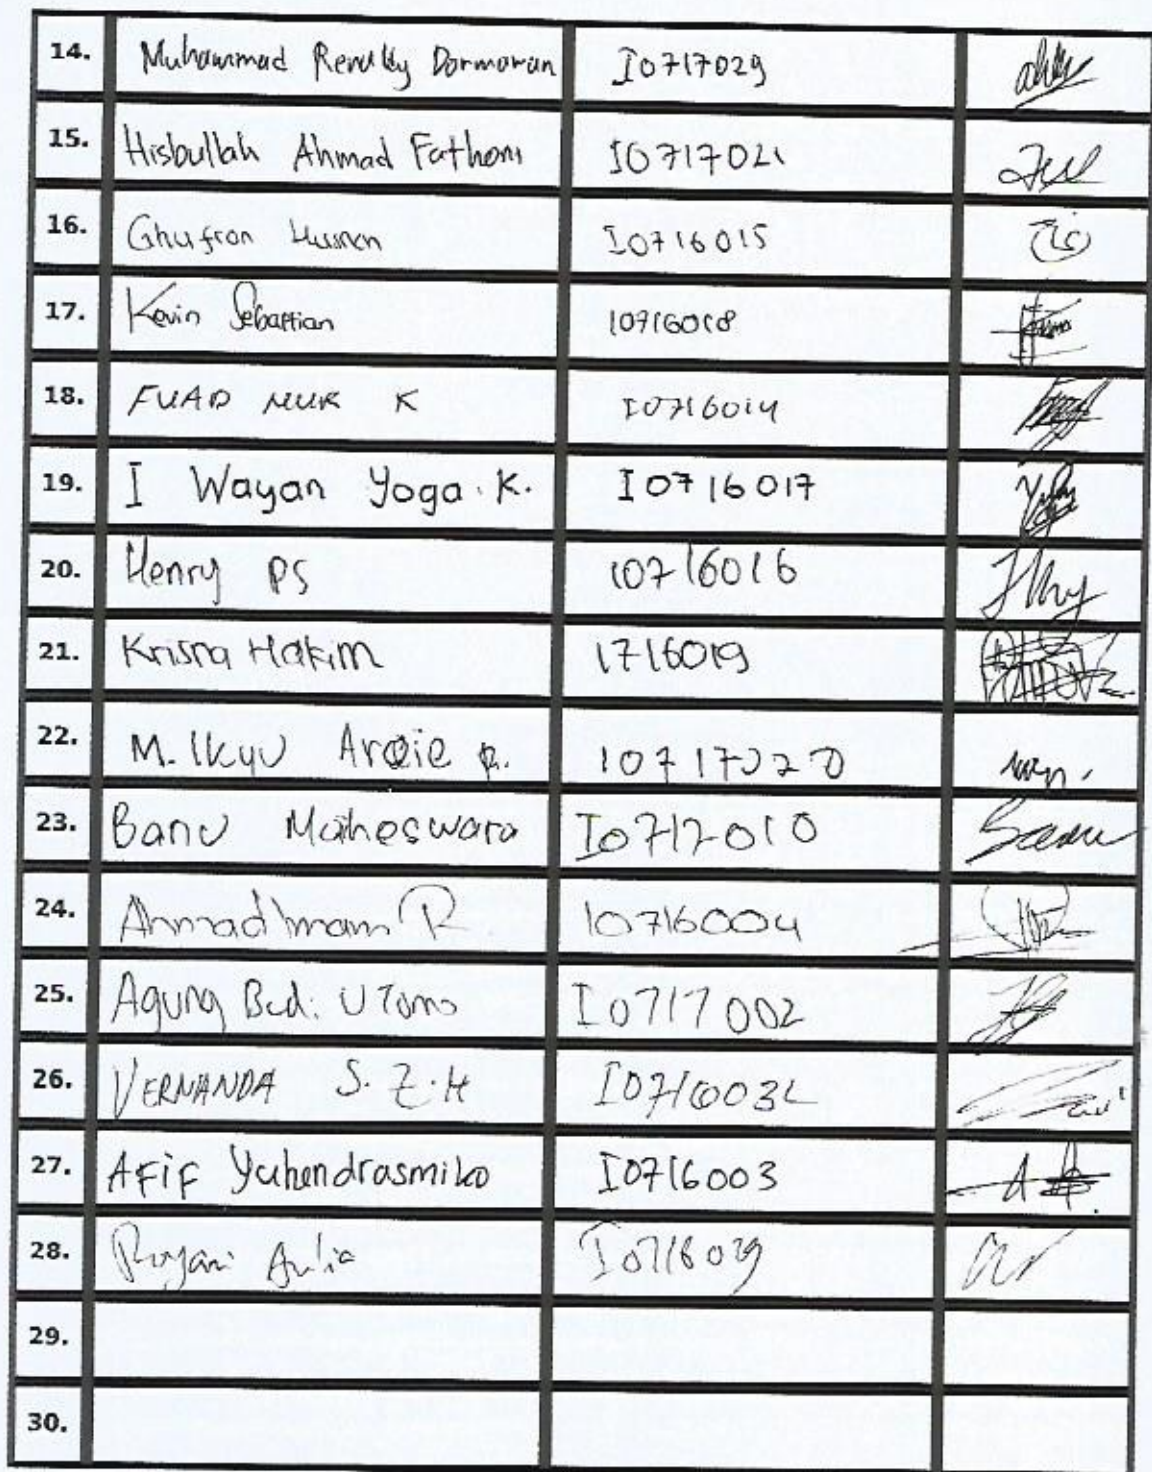 14. Muhammad Renaldy Darmawan I0717029
15. Hisbullah Ahmad Fathoni I0717021
16. Ghufron Husnan I0716015
17. Kevin Sebastian I0716018
18. FUAD NUR K I0716014
19. I Wayan Yoga. K. I0716017
20. Henry PS I0716016
21. Krisna Hakim I716019
22. M. Ikyu Arqie R. I0717020
23. Banu Maheswara I0717010
24. Ahmad Imam R I0716004
25. Agung Budi UTomo I0717002
26. VERNANDA S. Z. H I0716032
27. AFiF Yuhendrasmiko I0716003
28. Aulia I0716029
29.
30.